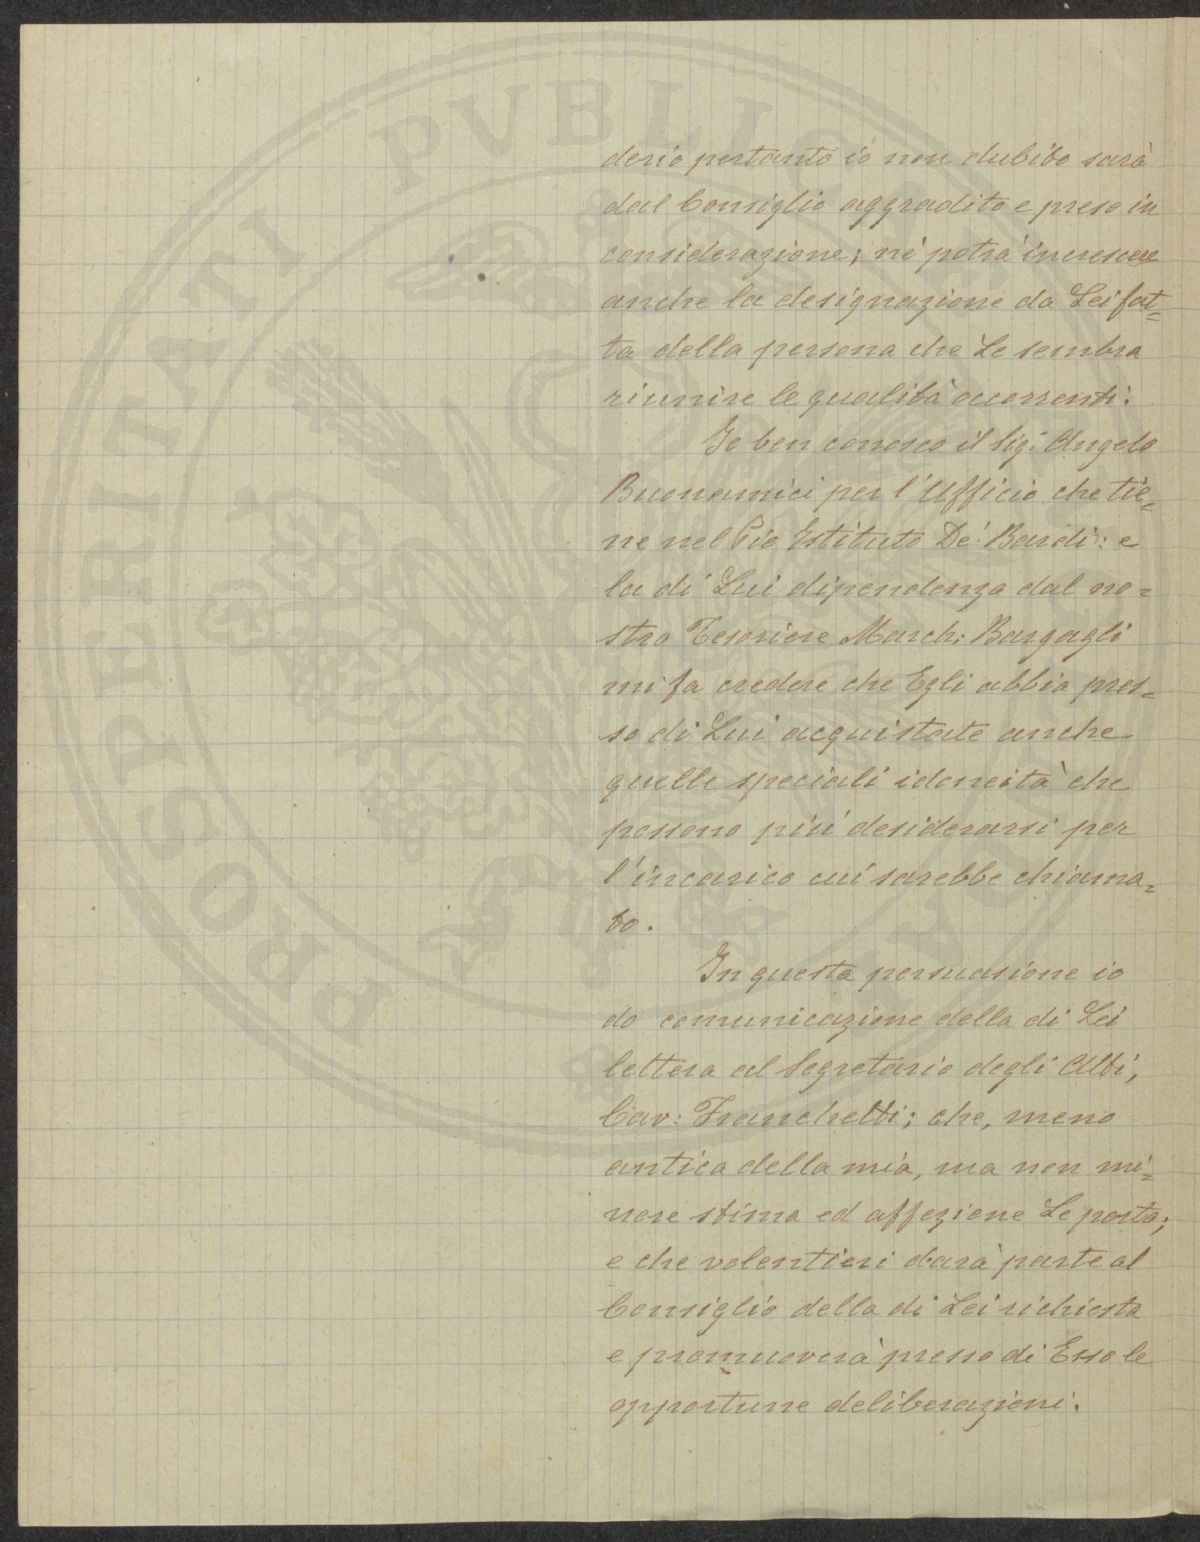 derio pertanto io non dubito sarà
dal Consiglio aggradito e preso in
considerazione; nè potrà increscere
anche la designazione da Lei fat=
ta della persona che Le sembra
riunire le qualità occorrenti.
Io ben conosco il Sig: Angelo
Buonamici per l'Ufficio che tie=
ne nel Pio Istituto De' Bardi: e
la di Lui dipendenza dal no=
stro Tesoriere March: Bargagli
mi fa credere che Egli abbia pres=
so di Lui acquistate anche
quelle speciali idoneità che
possono più desiderarsi per
l'incarico cui sarebbe chiama=
to.
In questa persuasione io
do comunicazione della di Lei
lettera al Segretario degli Atti,
Cav: Franchetti; che, meno
antica della mia, ma non mi=
nore stima ed affezione Le porta;
e che volentieri darà parte al
Consiglio della di Lei richiesta
e promuoverà presso di Esso le
opportune deliberazioni.
PROSPERITATI PVBLICAE